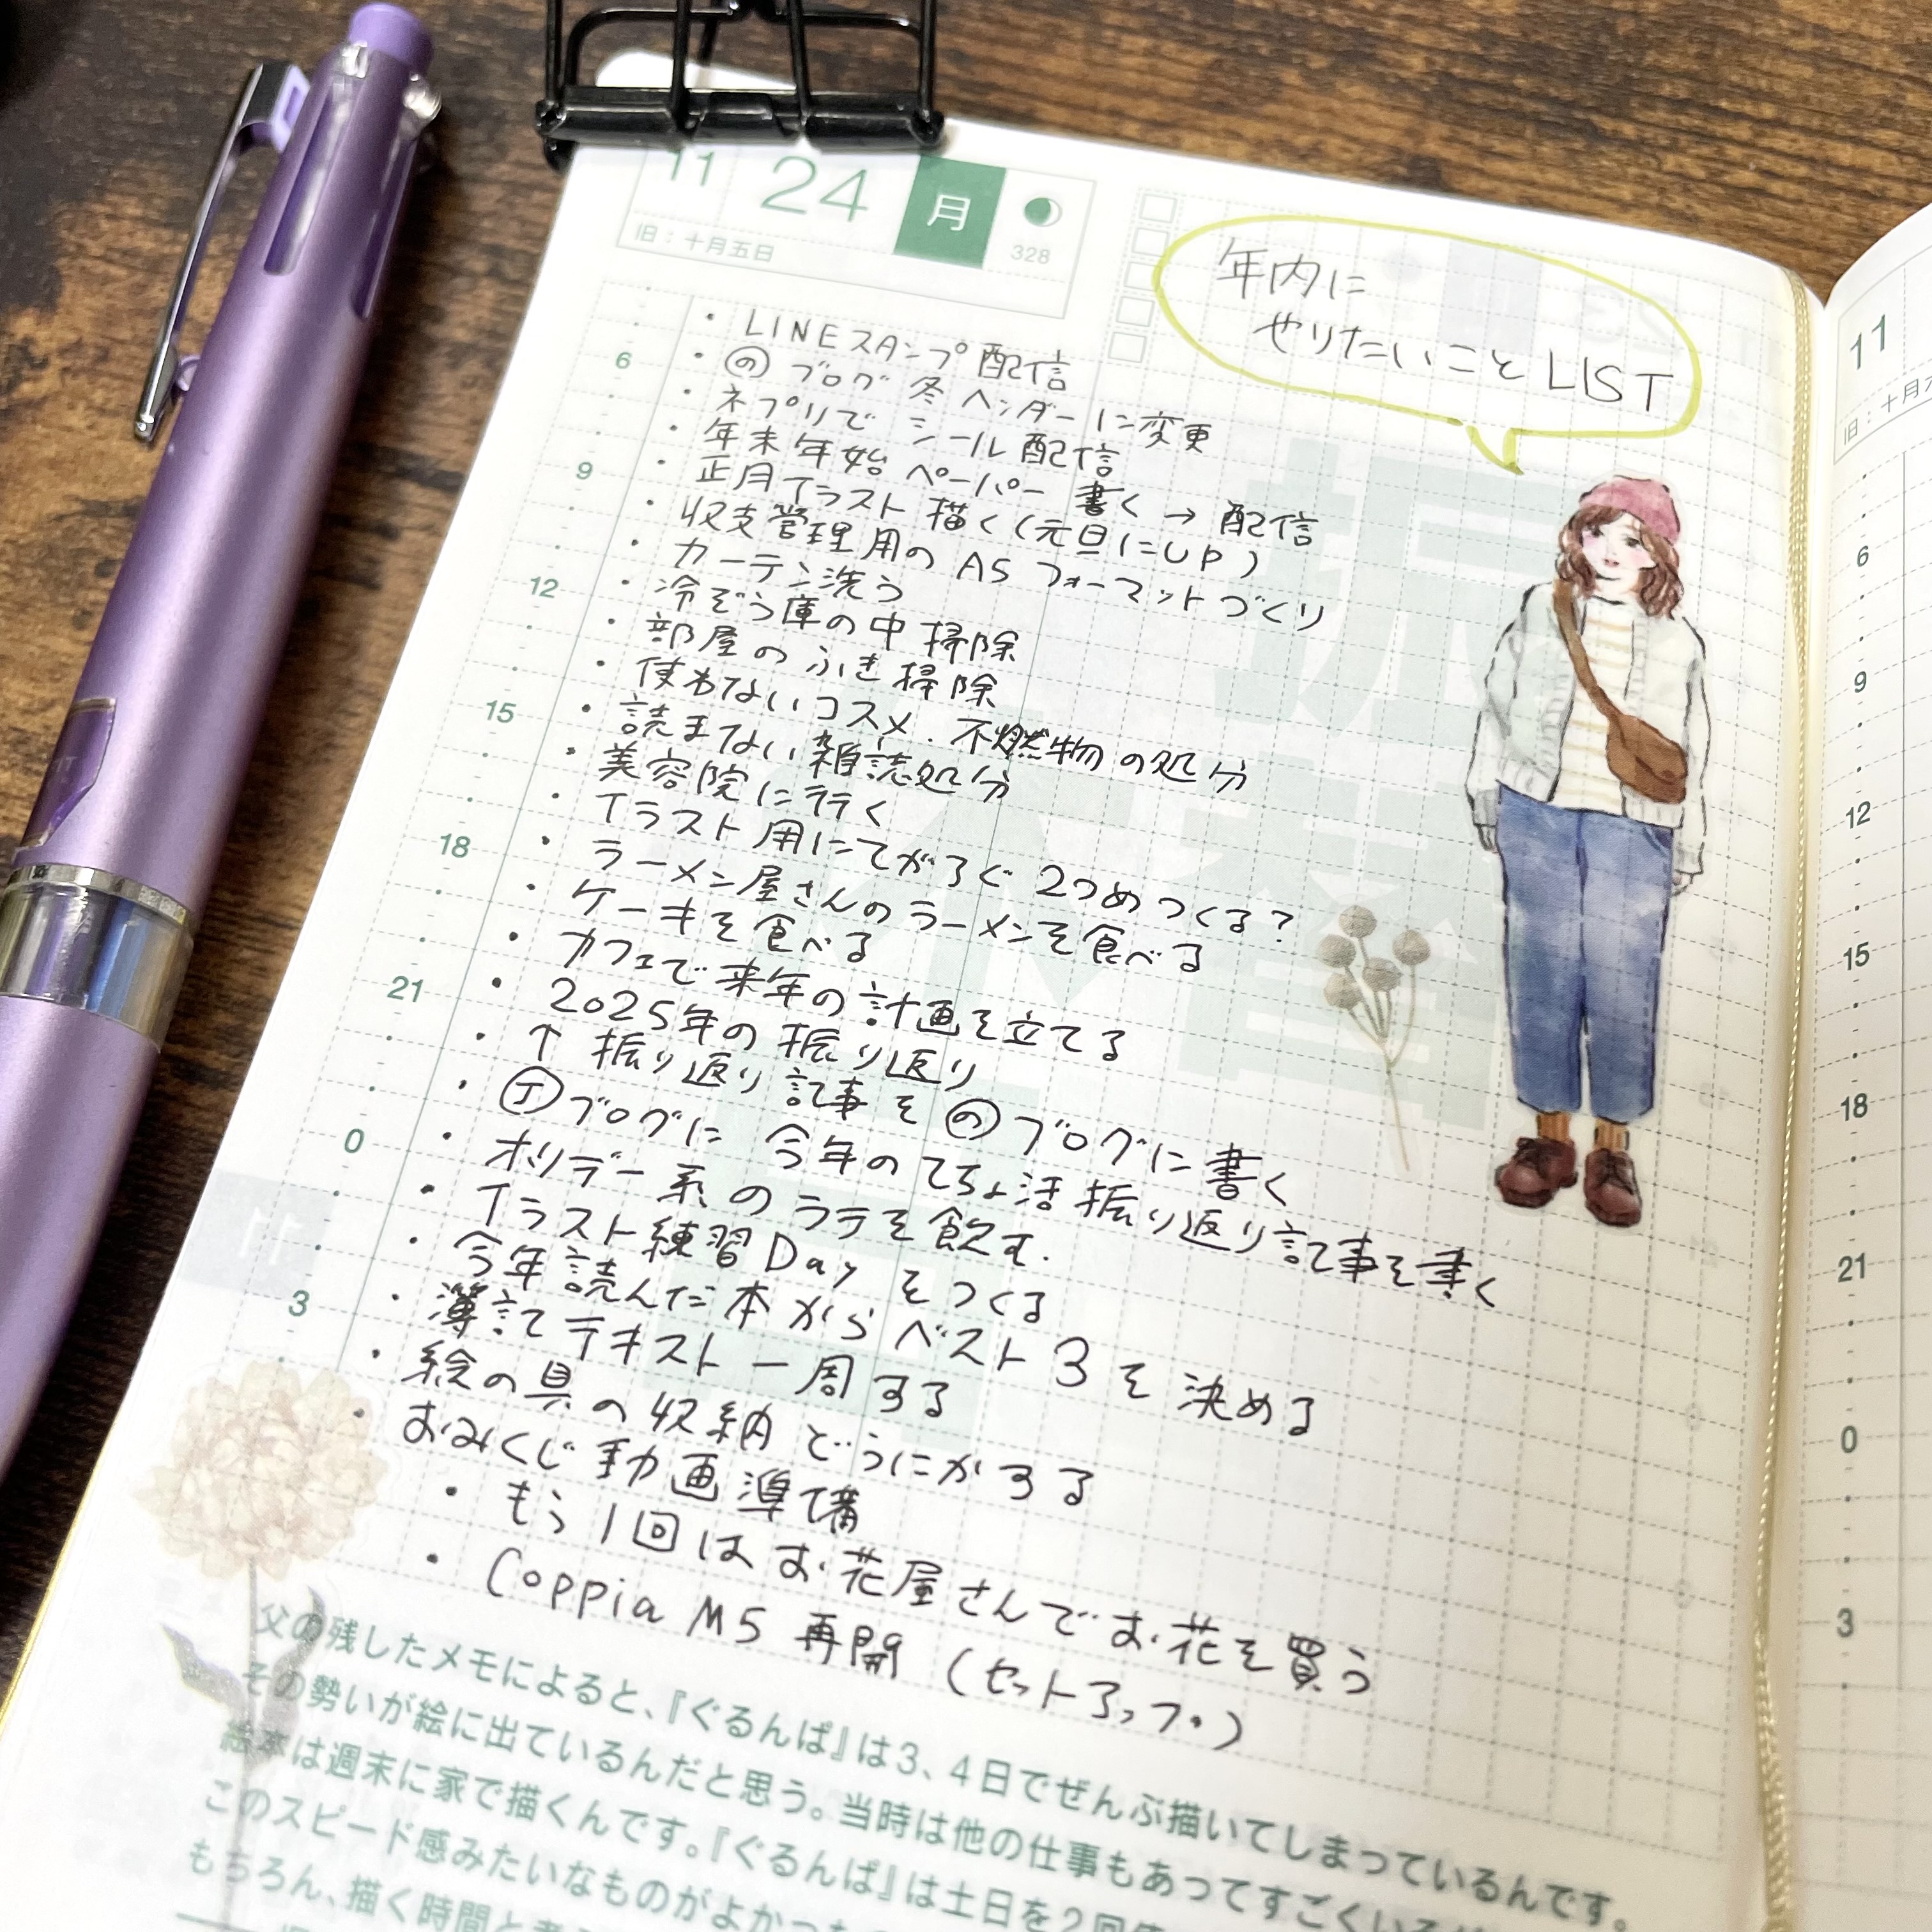 11 24 月
旧：十月五日 328
年内に
やりたいこと LIST
・LINEスタンプ 配信
・の ブログ 冬 ヘッダーに変更
・ネプリで シール配信
・年末年始 ペーパー 書く → 配信
・正月イラスト 描く(元旦にUP)
・収支管理用の A5 フォーマットづくり
・カーテン洗う
・冷ぞう庫の中 掃除
・部屋の ふき掃除
・使わないコスメ、不燃物の処分
・読まない雑誌処分
・美容院に行く
・イラスト用にてがろぐ 2つめ つくる?
・ラーメン屋さんの ラーメンを食べる
・ケーキを食べる
・カフェで来年の計画を立てる
・2025年の 振り返り
・↑ 振り返り記事を の ブログに書く
・ブログに 今年のてちょ活振り返り記事を書く
・ホリデー系のラテを飲む.
・イラスト練習Dayをつくる
・今年読んだ本から ベスト3を決める
・簿記テキスト 一周する
・絵の具の収納 どうにかする
おみくじ動画準備
・もう1回は お花屋さんでお花を買う
・Coppia M5 再開 (セットアップ)
6
9
12
15
18
21
0
3
11
父の残したメモによると、『ぐるんぱ』は3、4日でぜんぶ描いてしまっているんです。
その勢いが絵に出ているんだと思う。当時は他の仕事もあってすごく
絵本は週末に家で描くんです。『ぐるんぱ』は土日を2回
このスピード感みたいなものがよかった
もちろん、描く時間と
11
旧：十月
6
9
12
15
18
21
0
3